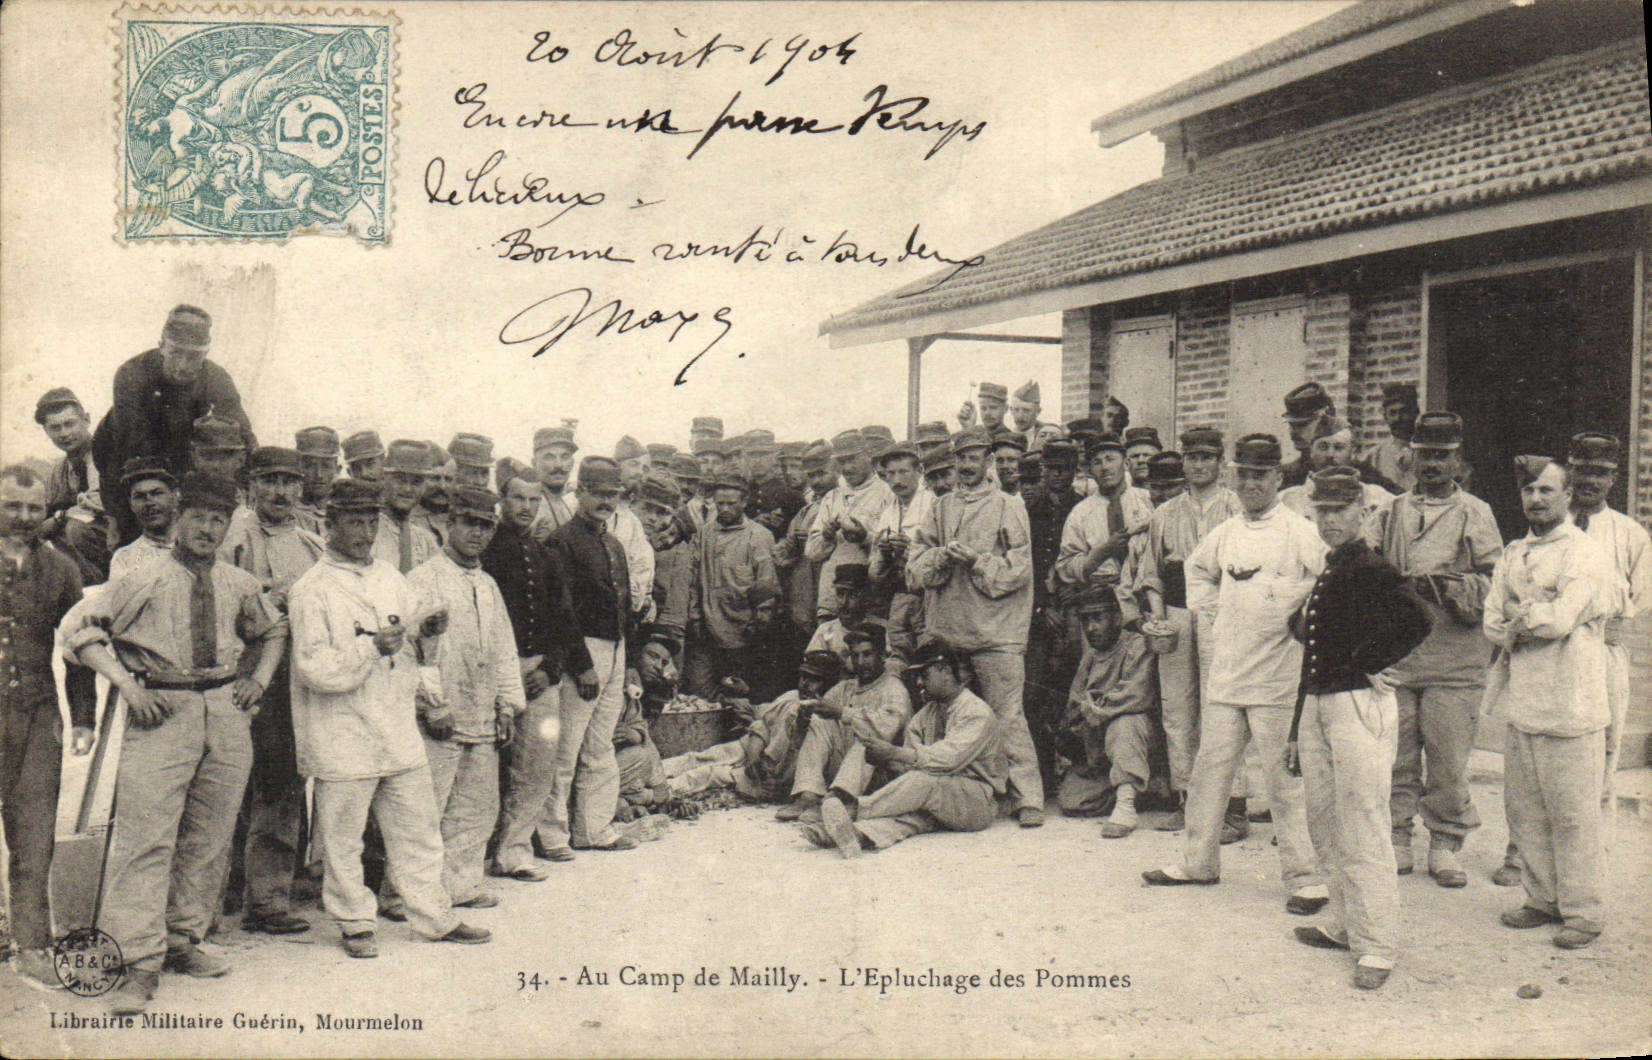 20 Août 1904
Encore un
Temps
délicieux.
Bonne santé à tous deux
FRANÇAISE
5c
POSTES
34. - Au Camp de Mailly. - L'Epluchage des Pommes
A.B & Cie
NANCY
Librairie Militaire Guérin, Mourmelon